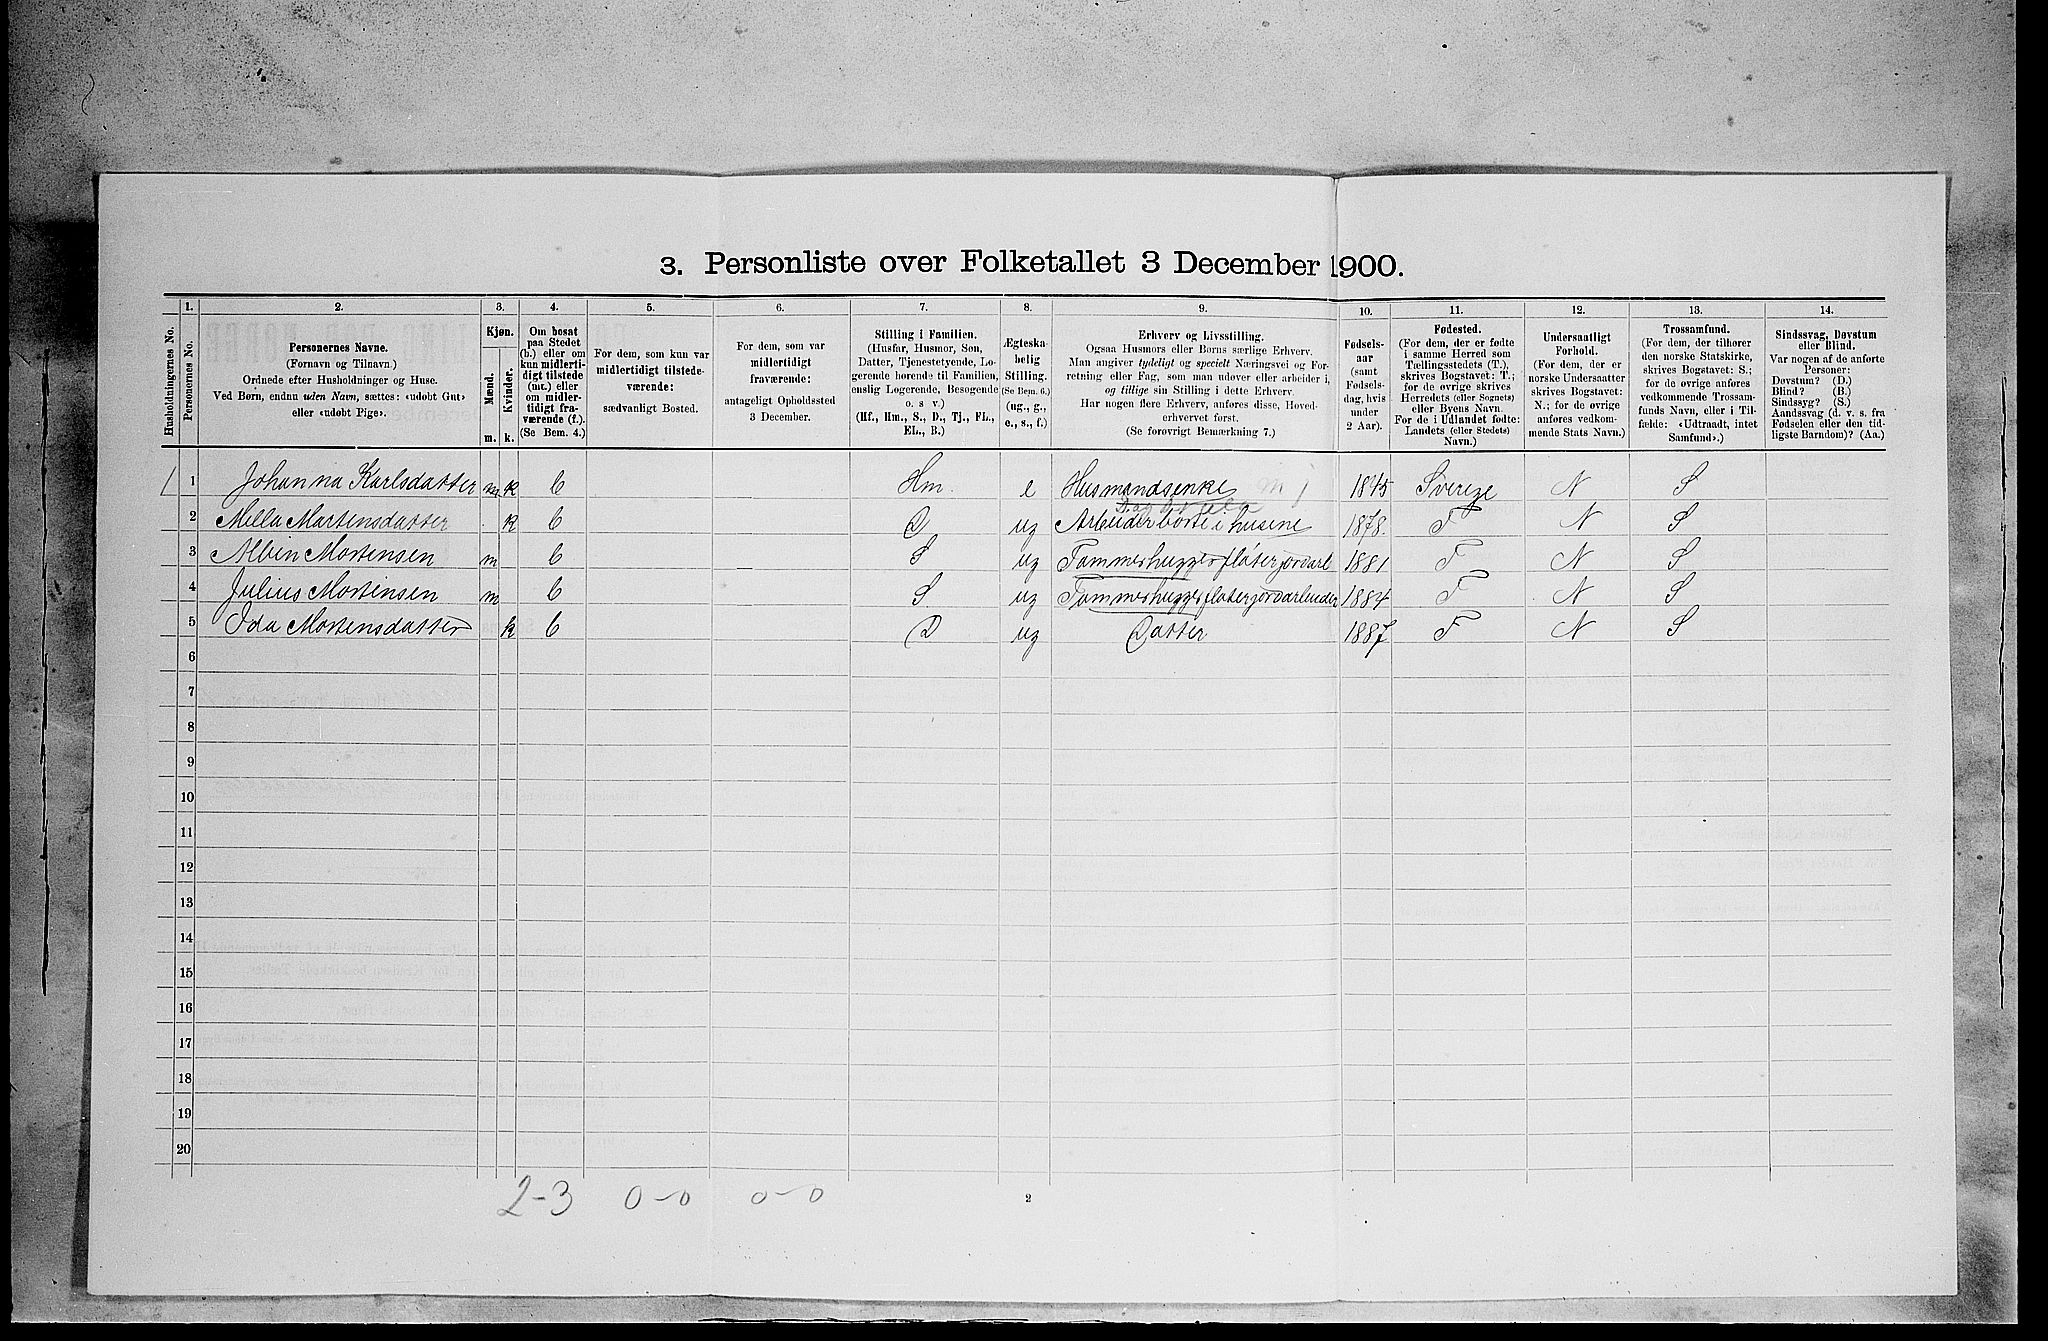 3. Personliste over Folketallet 3 December 1900.
1. 2. 3. 4. 5. 6. 7. 8. 9. 10. 11. 12. 13. 14.
Husholdningernes No.
Personernes No.
Personernes Navne.
(Fornavn og Tilnavn.)
Ordnede efter Husholdninger og Huse.
Ved Børn, endnu uden Navn, sættes: «udøbt Gut»
eller «udøbt Pige».
Kjøn.
Mænd.
Kvinder.
m. k.
Om bosat
paa Stedet
(b.) eller om
kun midlerti-
digt tilstede
(mt.) eller
om midler-
tidigt fra-
værende (f.).
(Se Bem. 4.)
For dem, som kun var
midlertidigt tilstede-
værende:
sædvanligt Bosted.
For dem, som var
midlertidigt
fraværende:
antageligt Opholdssted
3 December.
Stilling i Familien.
(Husfar, Husmor, Søn,
Datter, Tjenestetyende, Lo-
gerende hørende til Familien,
enslig Logerende, Besøgende
o. s v.)
(Hf., Hm., S., D., Tj., FL.,
EL., B.)
Ægteska-
belig
Stilling.
(Se Bem. 6.)
(ug., g.,
e., s., f.)
Erhverv og Livsstilling.
Ogsaa Husmors eller Børns særlige Erhverv.
Man angiver tydeligt og specielt Næringsvei og For-
retning eller Fag, som man udøver eller arbeider i,
og tillige sin Stilling i dette Erhverv.
Har nogen flere Erhverv, anføres disse, Hoved-
erhvervet først.
(Se forøvrigt Bemærkning 7.)
Fødsels-
aar
(samt
Fødsels-
dag, hvis
under
2 Aar).
Fødested.
(For dem, der er fødte
i samme Herred som
Tællingsstedets (T.),
skrives Bogstavet: T.;
for de øvrige skrives
Herredets (eller Sognets)
eller Byens Navn.
For de i Udlandet fødte:
Landets (eller Stedets)
Navn.)
Undersaatligt
Forhold.
(For dem, der er
norske Undersaatter
skrives Bogstavet:
N.; for de øvrige
anføres vedkom-
mende Stats Navn.)
Trossamfund.
(For dem, der tilhører
den norske Statskirke,
skrives Bogstavet: S.;
for de øvrige anføres
vedkommende Trossam-
funds Navn, eller i Til-
fælde: «Udtraadt, intet
Samfund».)
Sindssvag, Døvstum
eller Blind.
Var nogen af de anførte
Personer:
Døvstum? (D.)
Blind? (B.)
Sindssyg? (S.)
Aandssvag (d. v. s. fra
Fødselen eller den tid-
ligste Barndom)? (Aa.)
1 1 Johanna Karlsdatter k b Hm. e Husmandsenke 1845 Sverige N S
2 Milla Martensdatter k b D ug Arbeider borte i husene 1878. T N S
3 Albin Mortensen m b S ug Tømmerhugger fløter jordarb 1881 T N S
4 Julius Mortensen m b S ug Tømmerhugger fløter jordarbeider 1884 T N S
5 Ida Mortensdatter k b D ug Datter 1887 T N S
6
7
8
9
10
11
12
13
14
15
16
17
18
19
20
2-3 0-0 0-0 2